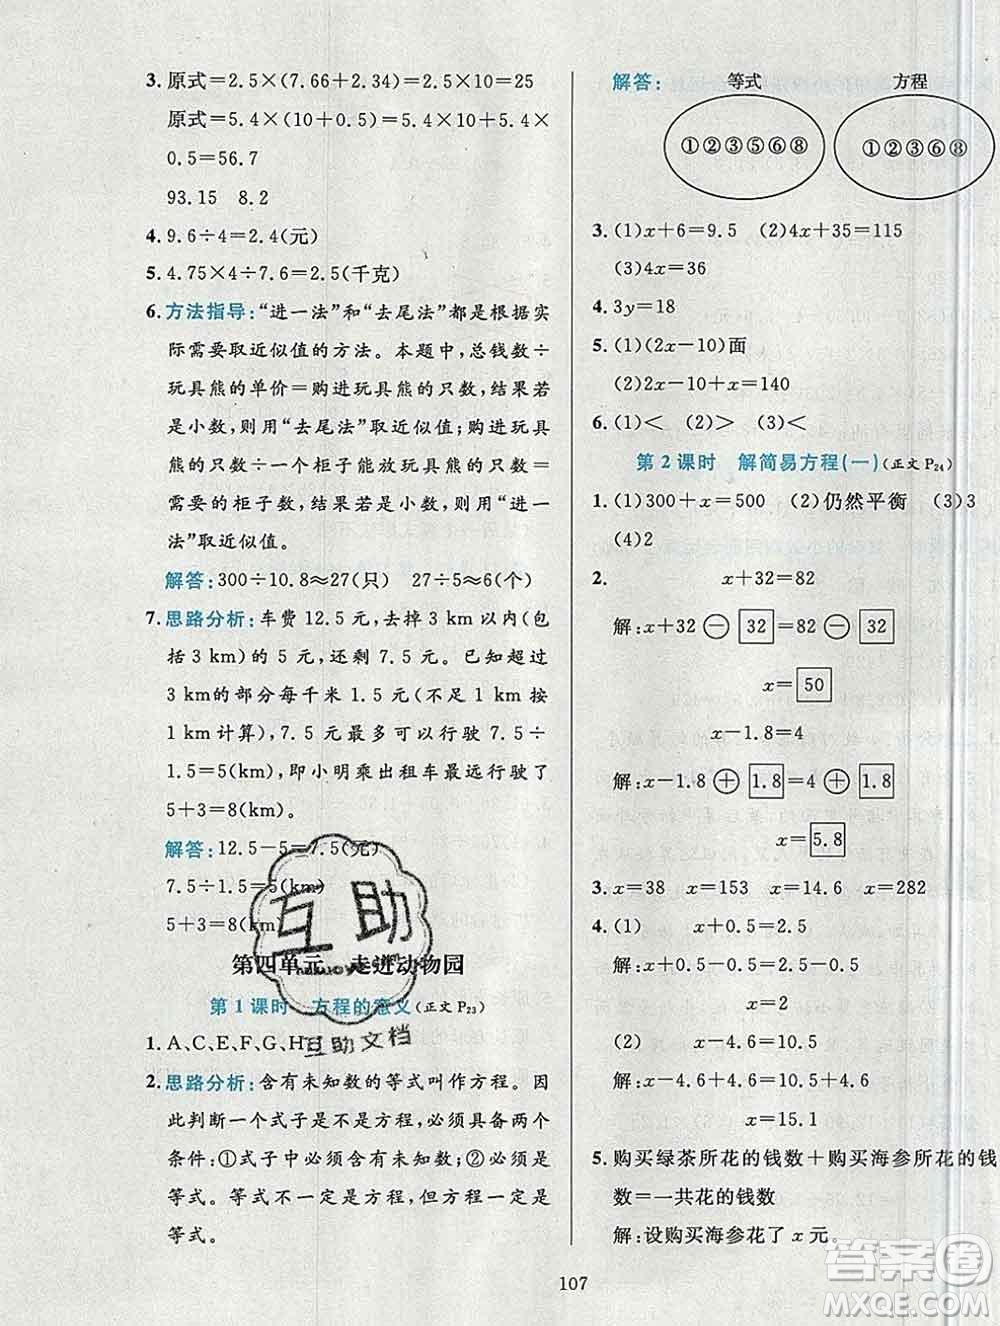 3. 原式=2.5×(7.66+2.34)=2.5×10=25
原式=5.4×(10+0.5)=5.4×10+5.4×
0.5=56.7
93.15 8.2
4. 9.6÷4=2.4(元)
5. 4.75×4÷7.6=2.5(千克)
6. 方法指导:“进一法”和“去尾法”都是根据实
际需要取近似值的方法。本题中,总钱数÷
玩具熊的单价=购进玩具熊的只数,结果若
是小数,则用“去尾法”取近似值。购进玩具
熊的只数÷一个柜子能放玩具熊的只数=
需要的柜子数,结果若是小数,则用“进一
法”取近似值。
解答:300÷10.8≈27(只) 27÷5≈6(个)
7. 思路分析:车费 12.5 元,去掉 3 km 以内(包
括 3 km)的 5 元,还剩 7.5 元。已知超过
3 km的部分每千米 1.5 元(不足 1 km 按
1 km计算),7.5 元最多可以行驶 7.5÷
1.5=5(km),即小明乘出租车最远行驶了
5+3=8(km)。
解答:12.5-5=7.5(元)
7.5÷1.5=5(km)
5+3=8(km)
第四单元 走进动物园
第 1 课时 方程的意义(正文 P23)
1. A、C、E、F、G、H、I
2. 思路分析:含有未知数的等式叫作方程。因
此判断一个式子是不是方程,必须具备两个
条件:①式子中必须含有未知数;②必须是
等式。等式不一定是方程,但方程一定是
等式。
解答: 等式 方程
①②③⑤⑥⑧ ①②③⑥⑧
3. (1)x+6=9.5 (2)4x+35=115
(3)4x=36
4. 3y=18
5. (1)(2x-10)面
(2)2x-10+x=140
6. (1)< (2)> (3)<
第 2 课时 解简易方程(一)(正文 P24)
1. (1)300+x=500 (2)仍然平衡 (3)3
(4)2
2. x+32=82
解:x+32 - 32 =82 - 32
x= 50
x-1.8=4
解:x-1.8 + 1.8 =4 + 1.8
x= 5.8
3. x=38 x=153 x=14.6 x=282
4. (1) x+0.5=2.5
解:x+0.5-0.5=2.5-0.5
x=2
(2) x-4.6=10.5
解:x-4.6+4.6=10.5+4.6
x=15.1
5. 购买绿茶所花的钱数+购买海参所花的钱
数=一共花的钱数
解:设购买海参花了 x 元。
107
互助
互助文档
答案圈
MXQE.COM